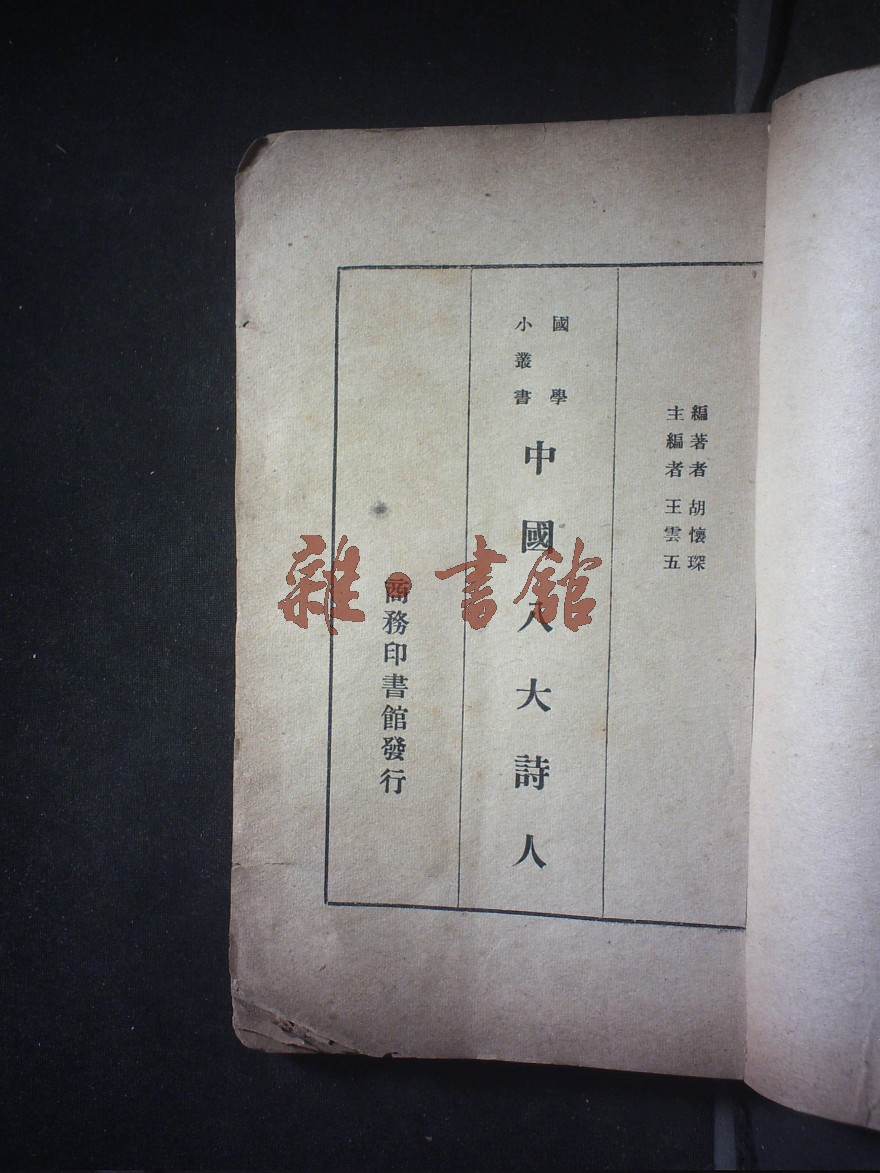 編著者 胡懷琛
主編者 王雲五
國學
小叢書
中國八大詩人
商務印書館發行
雜·書館